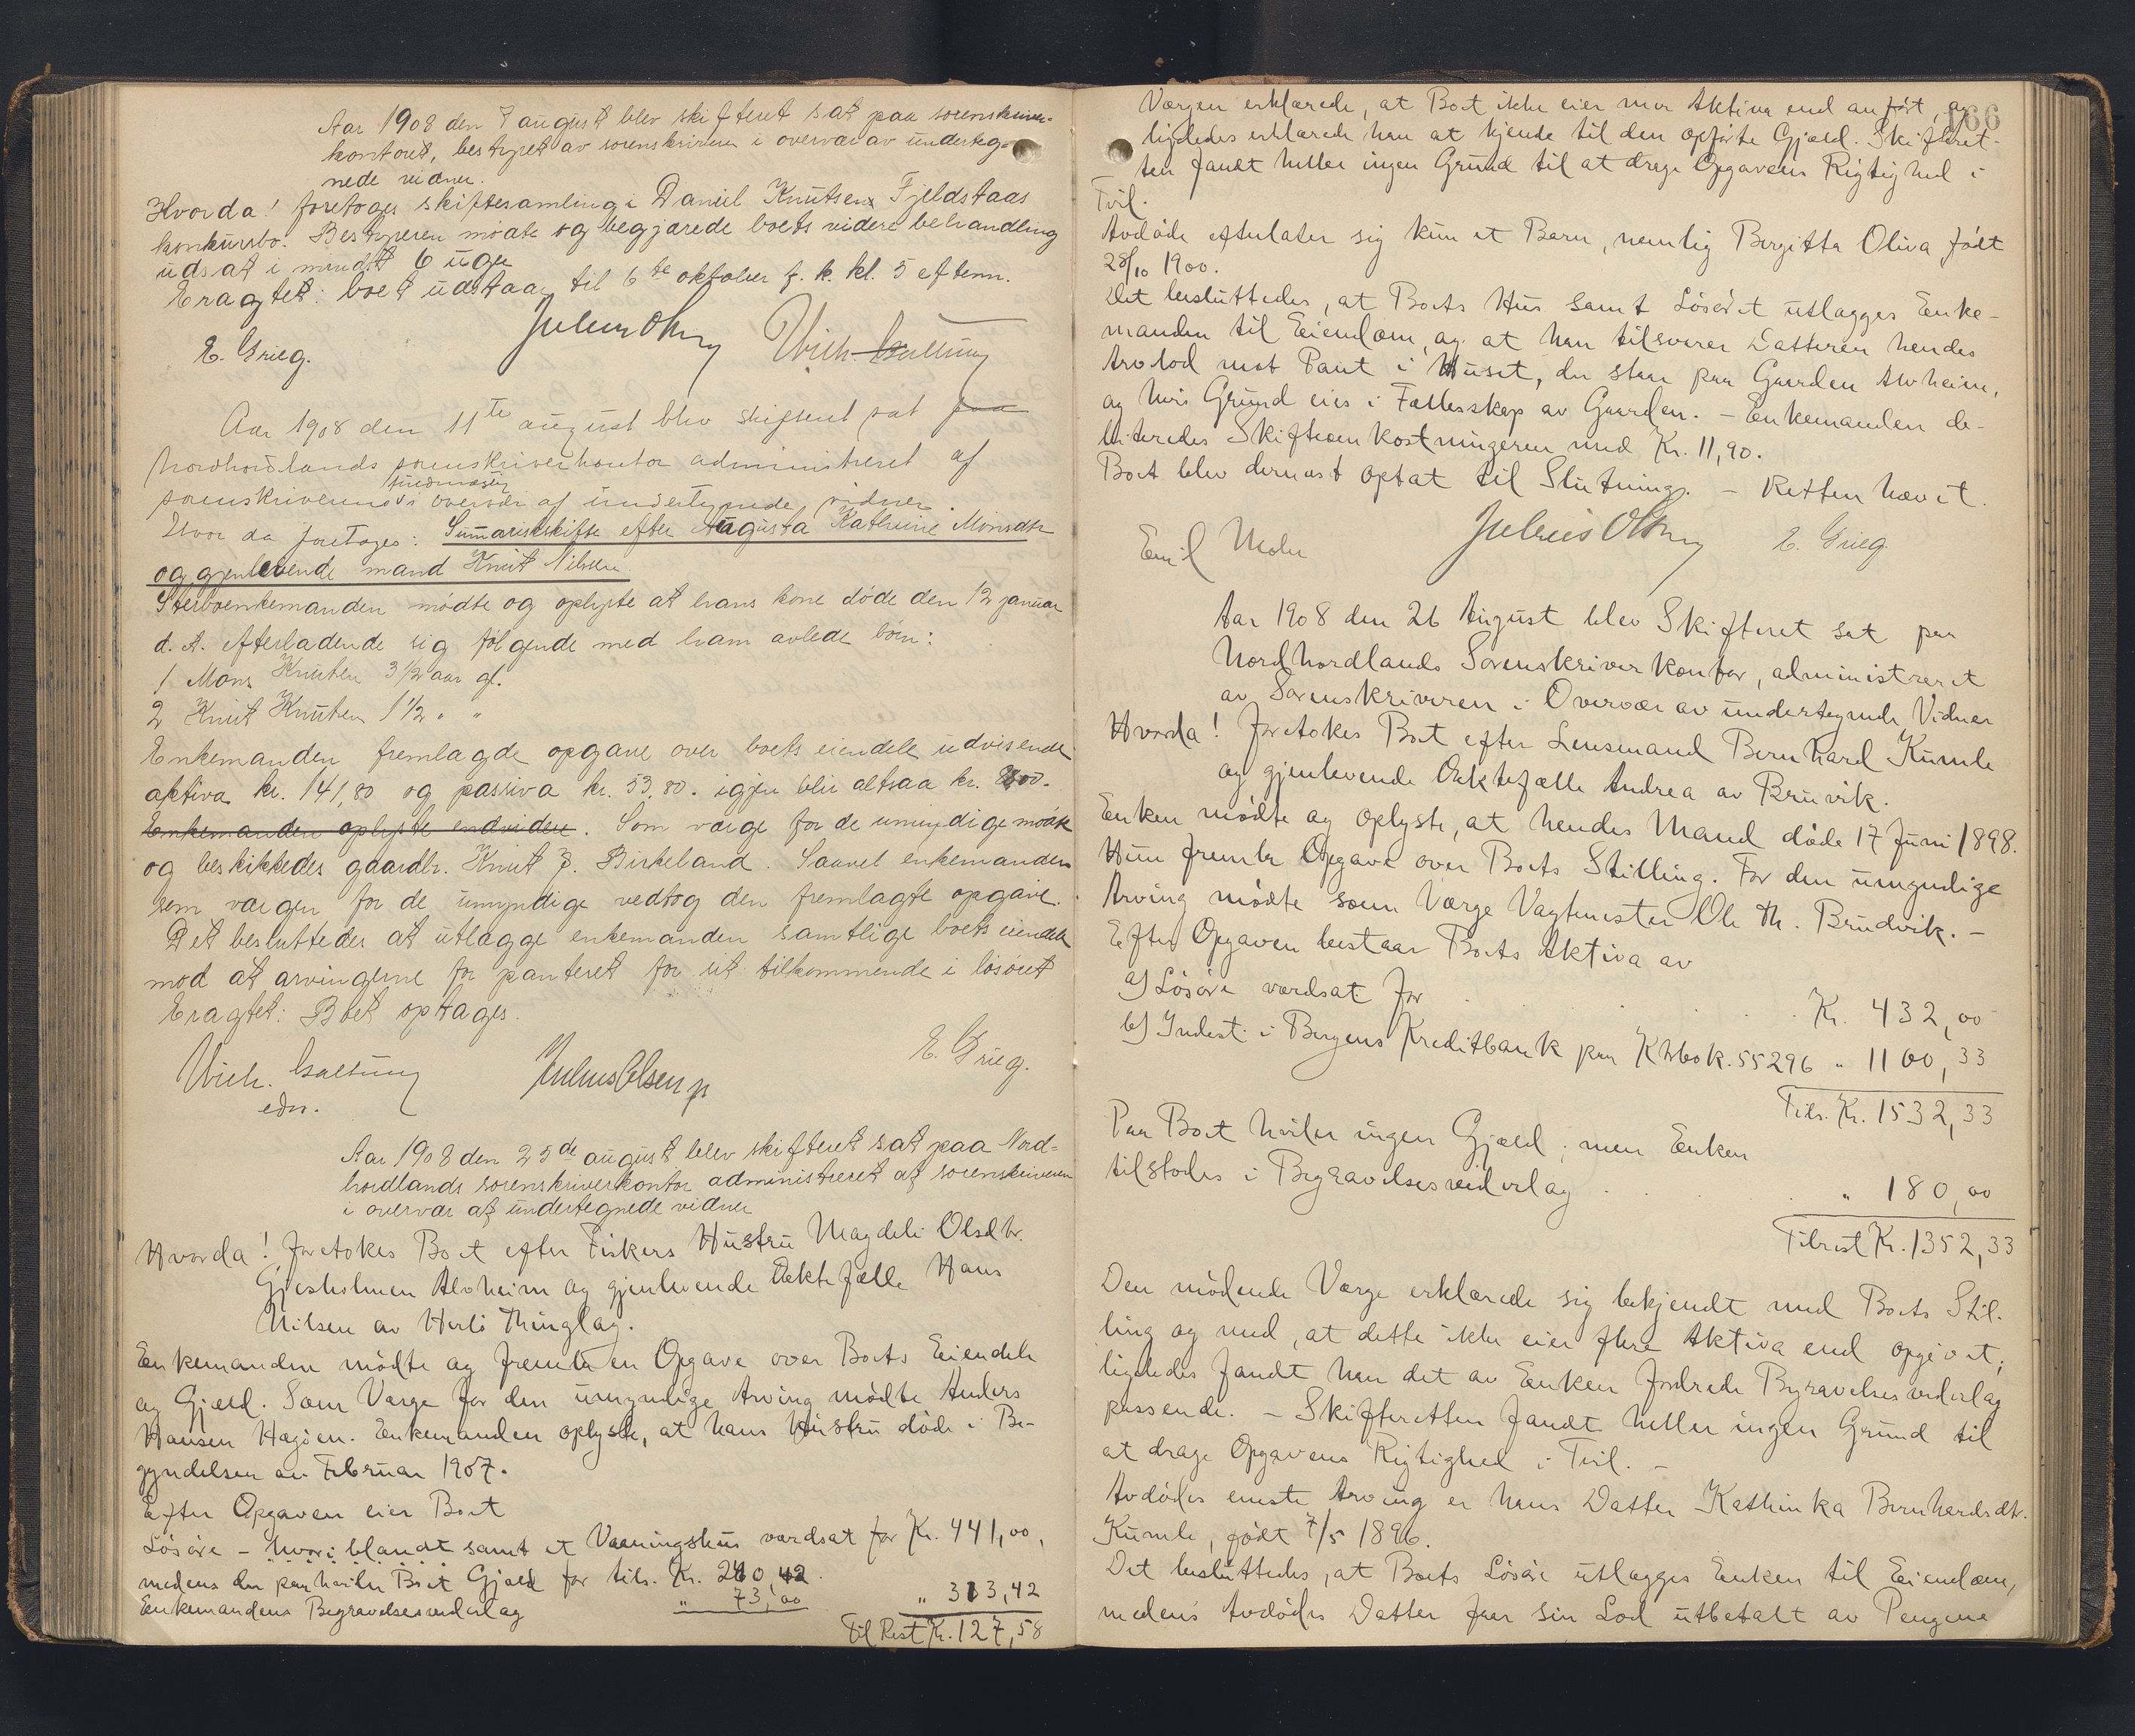 Aar 1908 den 7 august blev skifteret sat paa sorenskriver-
kontoret, bestyret av sorenskriveren i overvær av underteg-
nede vidner.
Hvorda! foretoges skiftesamling i Daniel Knutsen Fjeldstaas
konkursbo. Bestyreren mødte og begjærede boets videre behandling
udsat i mindst 6 uger
Eragtet: boet udstaar til 6te oktober f. k. kl. 5 efterm.
E. Grieg. Julius Olsen Wich. Galtung
Aar 1908 den 11te august blev skifteret sat paa
Nordhordlands sorenskriverkontor administreret af
sorenskriverens fuldmægtig i overvær af undertegnede vidner.
Hvor da foretoges: Summariskskifte efter Augusta Kathrine Monsdtr
og gjenlevende mand Knut Nilsen
Sterboenkemanden mødte og oplyste at hans kone døde den 12 januar
d. A. efterladende sig følgende med ham avlede børn:
1 Mons Knutsen 3 1/2 aar gl.
2 Knut Knutsen 1 1/2 " "
Enkemanden fremlagde opgave over boets eiendele udvisende
aktiva kr. 141,80 og passiva kr. 53,80. igjen blir altsaa kr.
Enkemanden oplyste endvidere. Som værge for de umyndige mødte
og beskikkedes gaardbr. Knut J. Birkeland. Saavel enkemanden
som værgen for de umyndige vedtog den fremlagte opgave.
Det besluttedes at utlægge enkemanden samtlige boets eiendele
mod at arvingerne for panteret for sit tilkommende i løsøret
Eragtet: Boet optages.
Wich. Galtung Julius Olsen E. Grieg.
edsv.
Aar 1908 den 25de august blev skifteret sat paa Nord-
hordlands sorenskriverkontor administreret af sorenskriveren
i overvær af undertegnede vidner
Hvorda! foretokes Boet efter Fiskers Hustru Magdeli Olsdtr.
Gjesholmen Alvheim og gjenlevende Ektefælle Hans
Nilsen av Herlø Thinglag.
Enkemanden mødte og fremla en Opgave over Boets Eiendele
og Gjæld. Som Værge for den umyndige Arving mødte Anders
Hansen Hagøen. Enkemanden oplyste, at hans Hustru døde i Be-
gyndelsen av Februar 1907.
Efter Opgaven eier Boet
Løsøre – hvoriblandt samt et Vaaningshus værdsat for Kr. 441,00,
medens der paahviler Boet Gjæld for tils. Kr. 240,42
Enkemandens Begravelsesvederlag " 73,00 " 313,42
Til Rest Kr. 127,58
166
Værgen erklærede, at Boet ikke eier mer Aktiva end anført, og
ligeledes erklærede han at kjende til den opførte Gjæld. Skifteret-
ten fandt heller ingen Grund til at drage Opgavens Rigtighed i
Tvil.
Avdøde efterlater sig kun et Barn, nemlig Birgitta Oliva født
28/10 1900.
Det besluttedes, at Boets Hus samt Løsøret utlægges Enke-
manden til Eiendom, og at han tilsvarer Datteren hendes
Arvelod mot Pant i Huset, der staar paa Gaarden Alvheim,
og hvis Grund eies i Fællesskap av Gaarden. – Enkemanden de-
biteredes Skifteomkostningerne med Kr. 11,90.
Boet blev dernæst optat til Slutning. – Retten hævet.
Emil Mohr Julius Olsen E. Grieg.
Aar 1908 den 26 August blev Skifteret sat paa
Nordhordlands Sorenskriverkontor, administreret
av Sorenskriveren i Overvær av undertegnede Vidner
Hvorda! foretokes Boet efter Lensmand Bernhard Kumle
og gjenlevende Ektefælle Andrea av Bruvik.
Enken mødte og oplyste, at hendes Mand døde 17 Juni 1898.
Hun fremla Opgave over Boets Stilling. For den umyndige
Arving mødte som Værge Vagtmester Ole Th. Brudvik. –
Efter Opgaven bestaar Boets Aktiva av
a) Løsøre værdsat for . . . . Kr. 432,00
b) Indest. i Bergens Kreditbank paa Ktrbok. 55296 " 1100,33
Tils. Kr. 1532,33
Paa Boet hviler ingen Gjæld; men Enken
tilstodes i Begravelsesvederlag . . . " 180,00
Tilrest Kr. 1352,33
Den mødende Værge erklærede sig bekjendt med Boets Stil-
ling og med, at dette ikke eier flere Aktiva end opgivet;
ligeledes fandt han det av Enken fordrede Begravelsesvederlag
passende. – Skifteretten fandt heller ingen Grund til
at drage Opgavens Rigtighed i Tvil. –
Avdødes eneste Arving er hans Datter Kathinka Bernhardsdtr.
Kumle, født 7/5 1896.
Det besluttedes, at Boets Løsøre utlægges Enken til Eiendom,
medens Avdødes Datter faar sin Lod utbetalt av Pengene